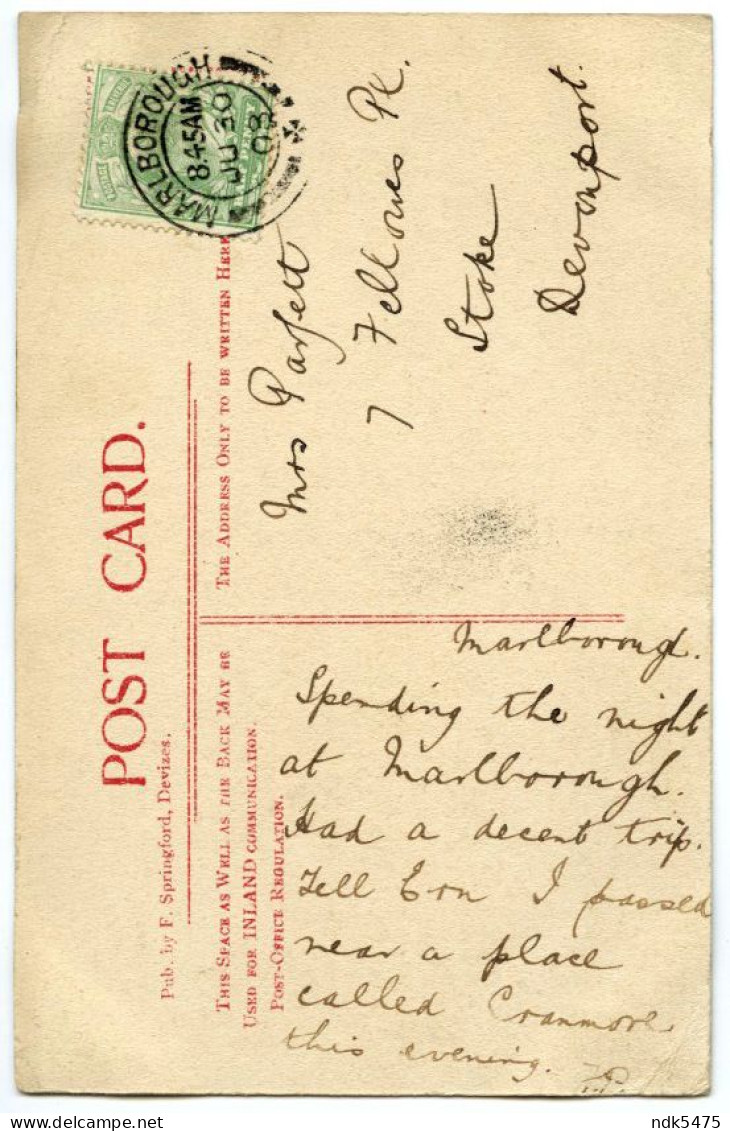 POST CARD.
Pub. by F. Springford, Devizes.
THIS SPACE AS WELL AS THE BACK MAY BE
USED FOR INLAND COMMUNICATION.
POST-OFFICE REGULATION.
THE ADDRESS ONLY TO BE WRITTEN HERE
MARLBOROUGH
8.45AM
JU 30
03
Mrs Parfett
7 Fellowes Pl.
Stoke
Devonport.
Marlborough.
Spending the night
at Marlborough.
Had a decent trip.
Tell Ern I passed
near a place
called Cranmore
this evening.
ndk5475